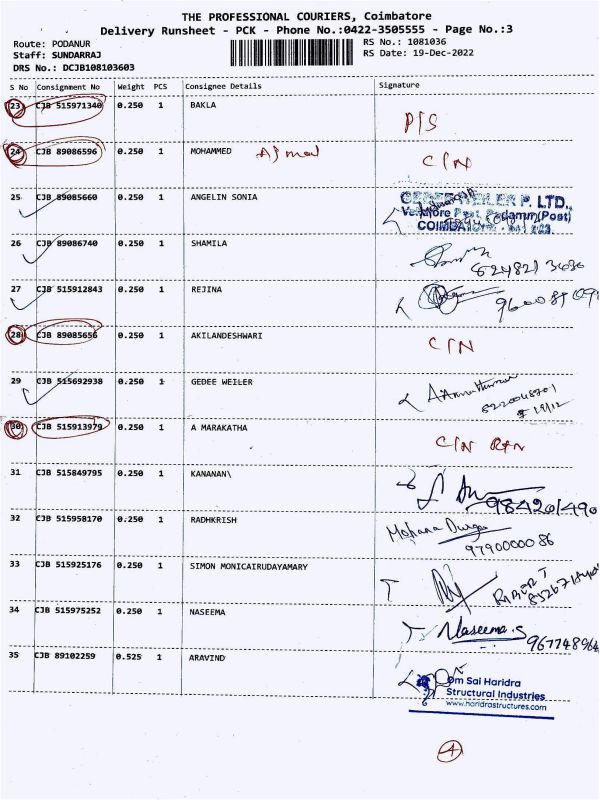 THE PROFESSIONAL COURIERS, Coimbatore
Delivery Runsheet - PCK - Phone No.:0422-3505555 - Page No.:3
Route: PODANUR RS No.: 1081036
Staff: SUNDARRAJ RS Date: 19-Dec-2022
DRS No.: DCJB108103603
S No Consignment No Weight PCS Consignee Details Signature
23 CJB 515971340 0.250 1 BAKLA P/S
24 CJB 89086596 0.250 1 MOHAMMED Ajmal C/N
25 CJB 89085660 0.250 1 ANGELIN SONIA WEILER P. LTD.,
(Post)
26 CJB 89086740 0.250 1 SHAMILA
27 CJB 515912843 0.250 1 REJINA
28 CJB 89085656 0.250 1 AKILANDESHWARI C/N
29 CJB 515692938 0.250 1 GEDEE WEILER
30 CJB 515913979 0.250 1 A MARAKATHA C/N RTN
31 CJB 515849795 0.250 1 KANANAN\
984201490
32 CJB 515958170 0.250 1 RADHKRISH Mohana Durga
9790000086
33 CJB 515925176 0.250 1 SIMON MONICAIRUDAYAMARY
34 CJB 515975252 0.250 1 NASEEMA Naseema.S
35 CJB 89102259 0.525 1 ARAVIND
Om Sai Haridra
Structural Industries
www.haridrastructures.com
4